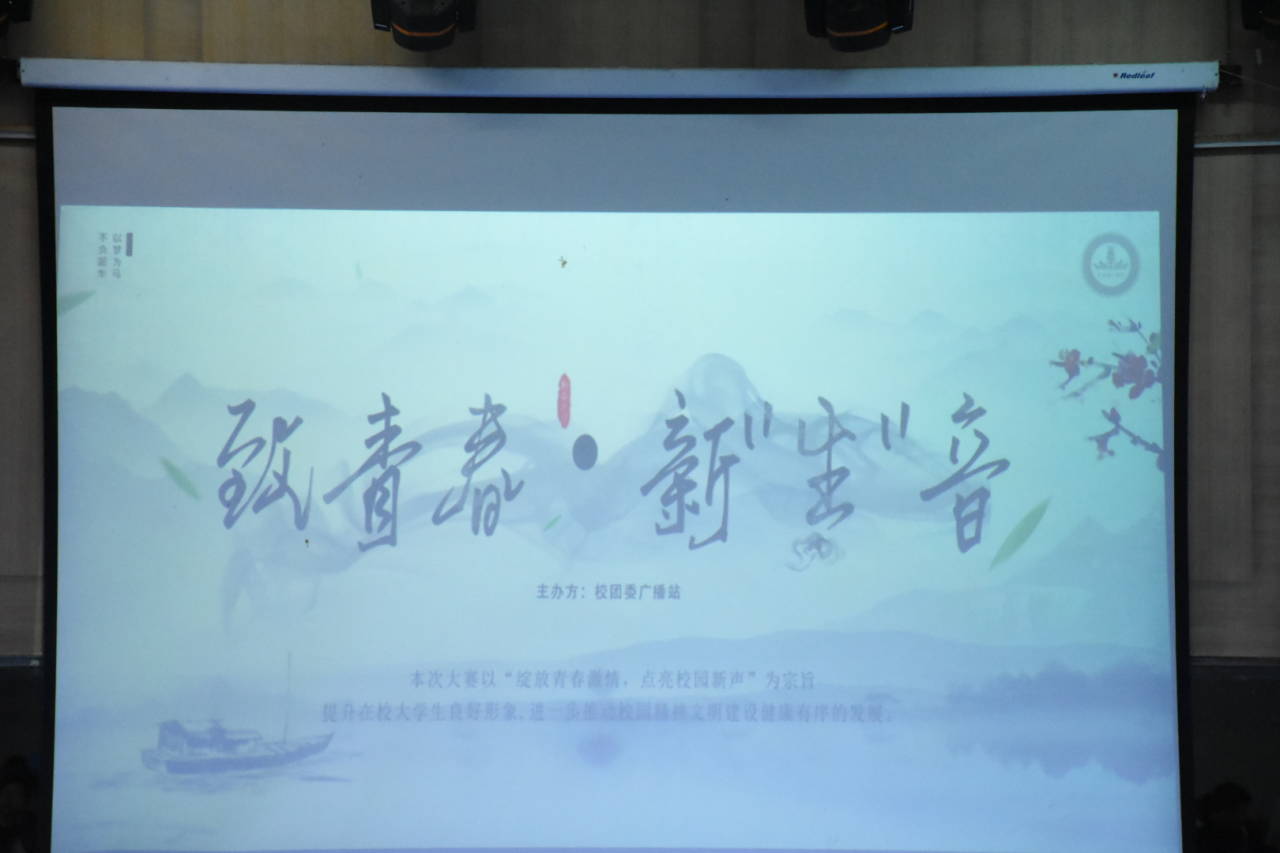 Redleaf
以梦为马
不负韶华
致青春·新"生"音
主办方：校团委广播站
本次大赛以“绽放青春激情，点亮校园新声”为宗旨
提升在校大学生良好形象，进一步推动校园精神文明建设健康有序的发展。